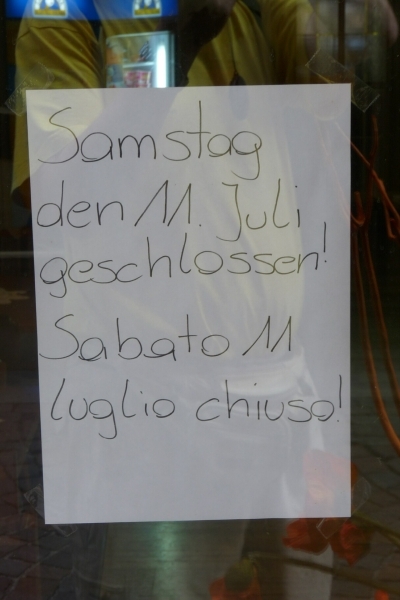 Samstag
den 11. Juli
geschlossen!
Sabato 11
luglio chiuso!